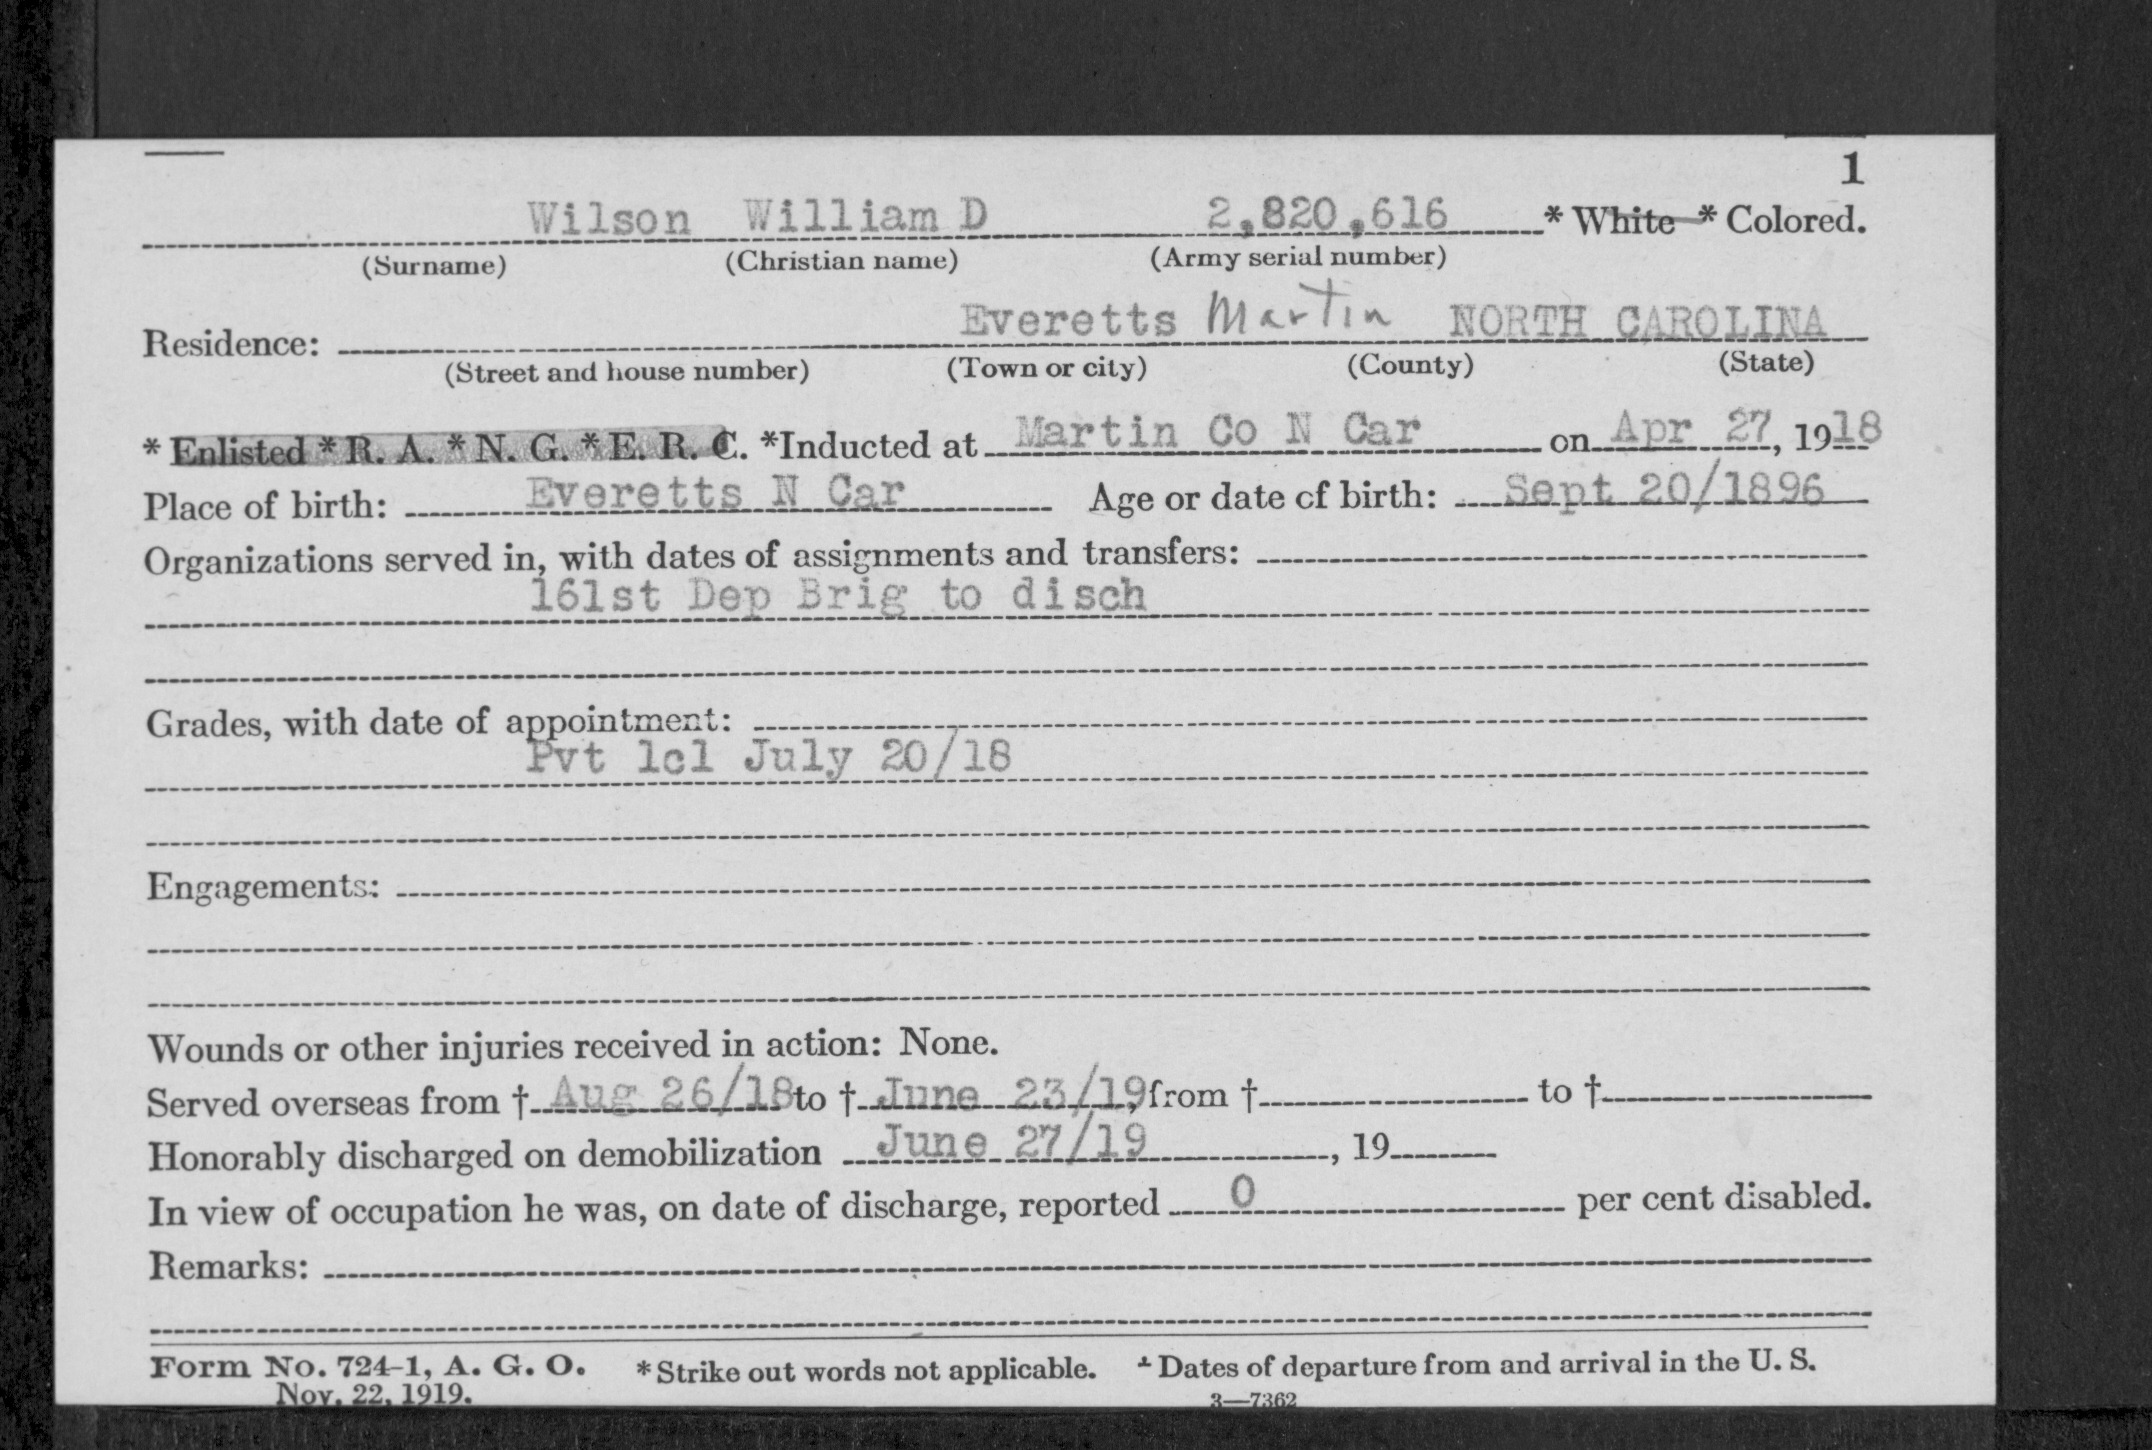 1
Wilson William D 2,820,616 * White * Colored.
(Surname) (Christian name) (Army serial number)
Residence: Everetts Martin NORTH CAROLINA
(Street and house number) (Town or city) (County) (State)
* Enlisted * R. A. * N. G. * E. R. C. *Inducted at Martin Co N Car on Apr 27, 1918
Place of birth: Everetts N Car Age or date of birth: Sept 20/1896
Organizations served in, with dates of assignments and transfers:
161st Dep Brig to disch
Grades, with date of appointment:
Pvt 1cl July 20/18
Engagements:
Wounds or other injuries received in action: None.
Served overseas from † Aug 26/18 to † June 23/19, from † to †
Honorably discharged on demobilization June 27/19, 19
In view of occupation he was, on date of discharge, reported 0 per cent disabled.
Remarks:
Form No. 724-1, A. G. O. * Strike out words not applicable. † Dates of departure from and arrival in the U. S.
Nov. 22, 1919. 3—7362